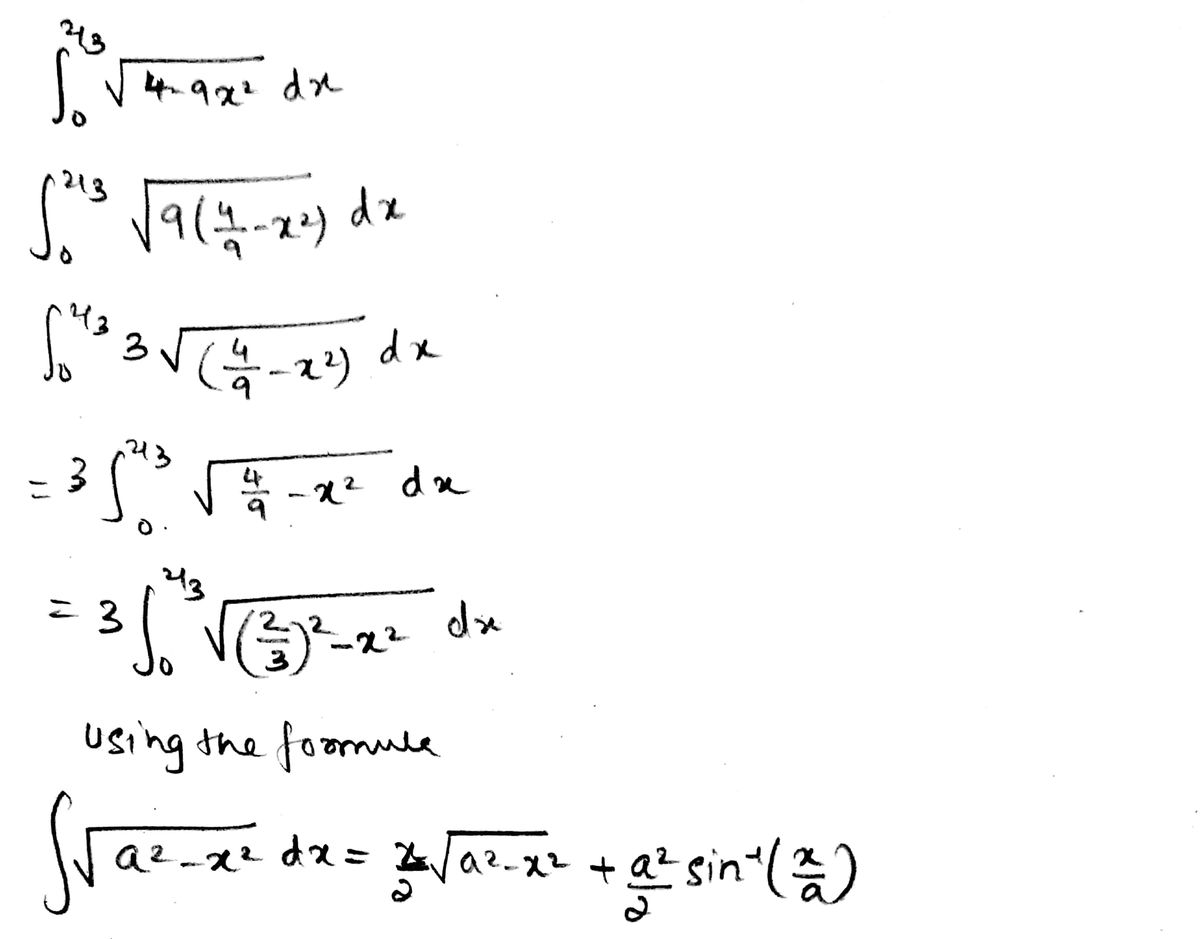 ∫₀^{2/3} √(4-9x²) dx
∫₀^{2/3} √(9(4/9-x²)) dx
∫₀^{2/3} 3√((4/9-x²)) dx
= 3∫₀^{2/3} √(4/9-x²) dx
= 3∫₀^{2/3} √((2/3)²-x²) dx
using the formula
∫√(a²-x²) dx = x/2 √(a²-x²) + a²/2 sin⁻¹(x/a)